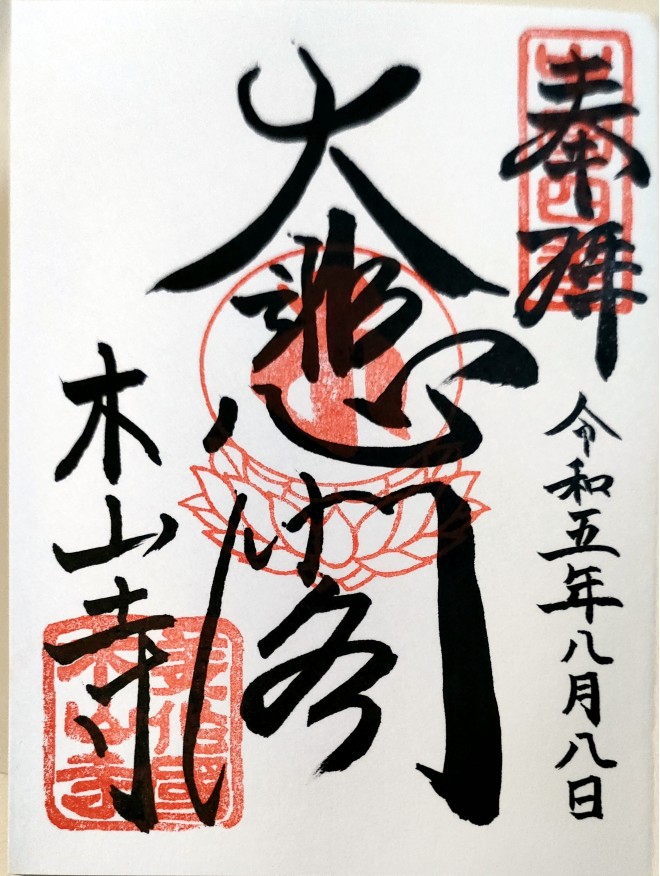 奉拝
令和五年八月八日
大悲閣
木山寺
美作國
木山寺